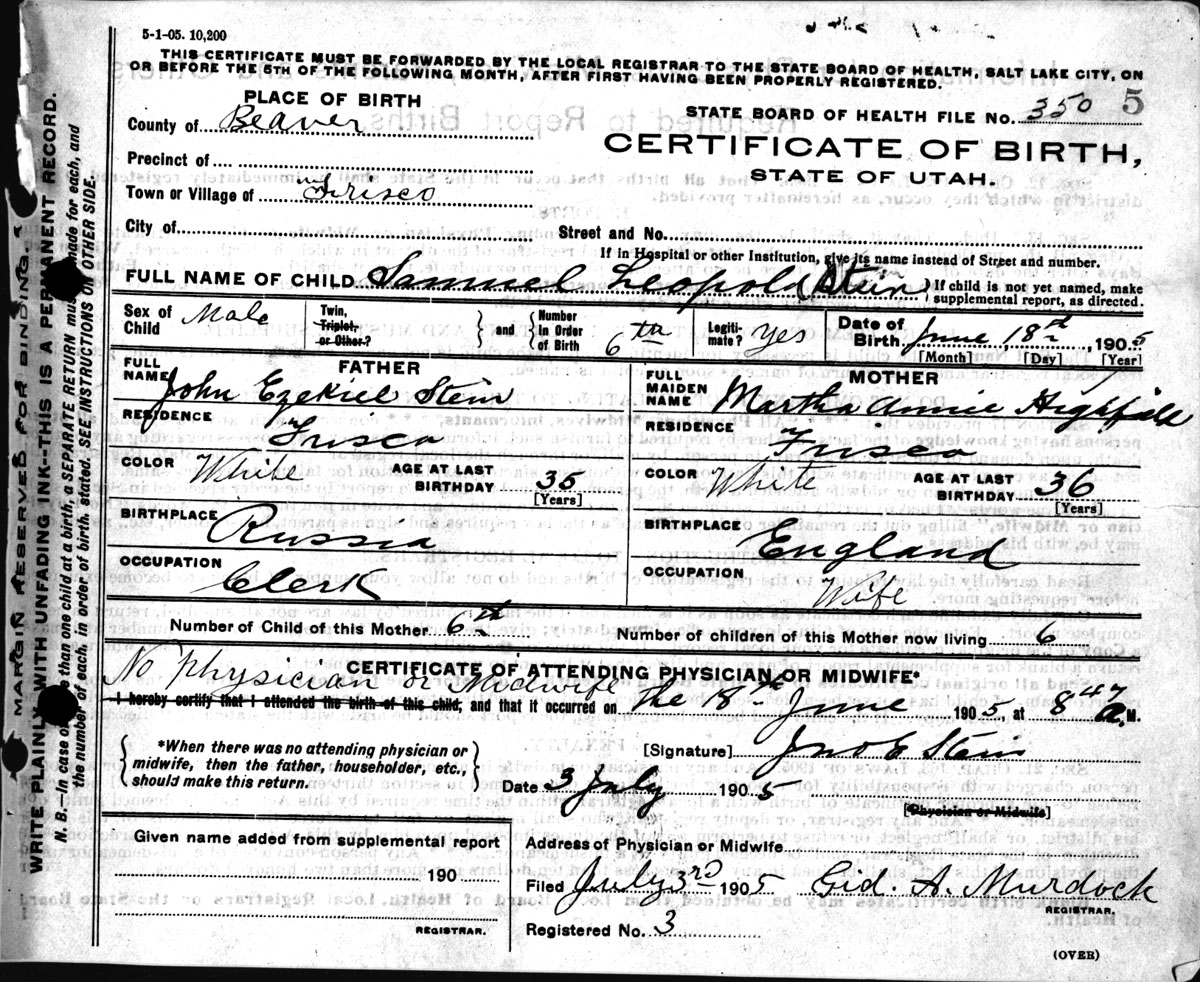 5-1-05. 10,200
THIS CERTIFICATE MUST BE FORWARDED BY THE LOCAL REGISTRAR TO THE STATE BOARD OF HEALTH, SALT LAKE CITY, ON
OR BEFORE THE 5TH OF THE FOLLOWING MONTH, AFTER FIRST HAVING BEEN PROPERLY REGISTERED.
PLACE OF BIRTH
STATE BOARD OF HEALTH FILE No. 350 5
County of Beaver
CERTIFICATE OF BIRTH,
Precinct of
STATE OF UTAH.
Town or Village of Frisco
City of
Street and No.
If in Hospital or other Institution, give its name instead of Street and number.
FULL NAME OF CHILD Samuel Leopold (Stein) If child is not yet named, make
supplemental report, as directed.
Sex of Child Male
Twin, Triplet, or Other?
and Number in Order of Birth 6th
Legitimate? Yes
Date of Birth June 18th, 1905
[Month] [Day] [Year]
FATHER
FULL NAME John Ezekiel Stein
RESIDENCE Frisco
COLOR White AGE AT LAST BIRTHDAY 35
[Years]
BIRTHPLACE Russia
OCCUPATION Clerk
MOTHER
FULL MAIDEN NAME Martha Annie Highfield
RESIDENCE Frisco
COLOR White AGE AT LAST BIRTHDAY 36
[Years]
BIRTHPLACE England
OCCUPATION Wife
Number of Child of this Mother 6th
Number of children of this Mother now living 6
CERTIFICATE OF ATTENDING PHYSICIAN OR MIDWIFE*
No Physician or Midwife
I hereby certify that I attended the birth of this child, and that it occurred on the 18th June 1905, at 8 47 a.M.
*When there was no attending physician or
midwife, then the father, householder, etc.,
should make this return.
[Signature] Jno E Stein
Date 3 July 1905
[Physician or Midwife]
Given name added from supplemental report
190
REGISTRAR.
Address of Physician or Midwife
Filed July 3rd 1905 Gid. A. Murdock
REGISTRAR.
Registered No. 3
(OVER)
MARGIN RESERVED FOR BINDING.
WRITE PLAINLY WITH UNFADING INK--THIS IS A PERMANENT RECORD.
N. B.--In case of more than one child at a birth, a SEPARATE RETURN must be made for each, and
the number of each, in order of birth, stated. SEE INSTRUCTIONS ON OTHER SIDE.